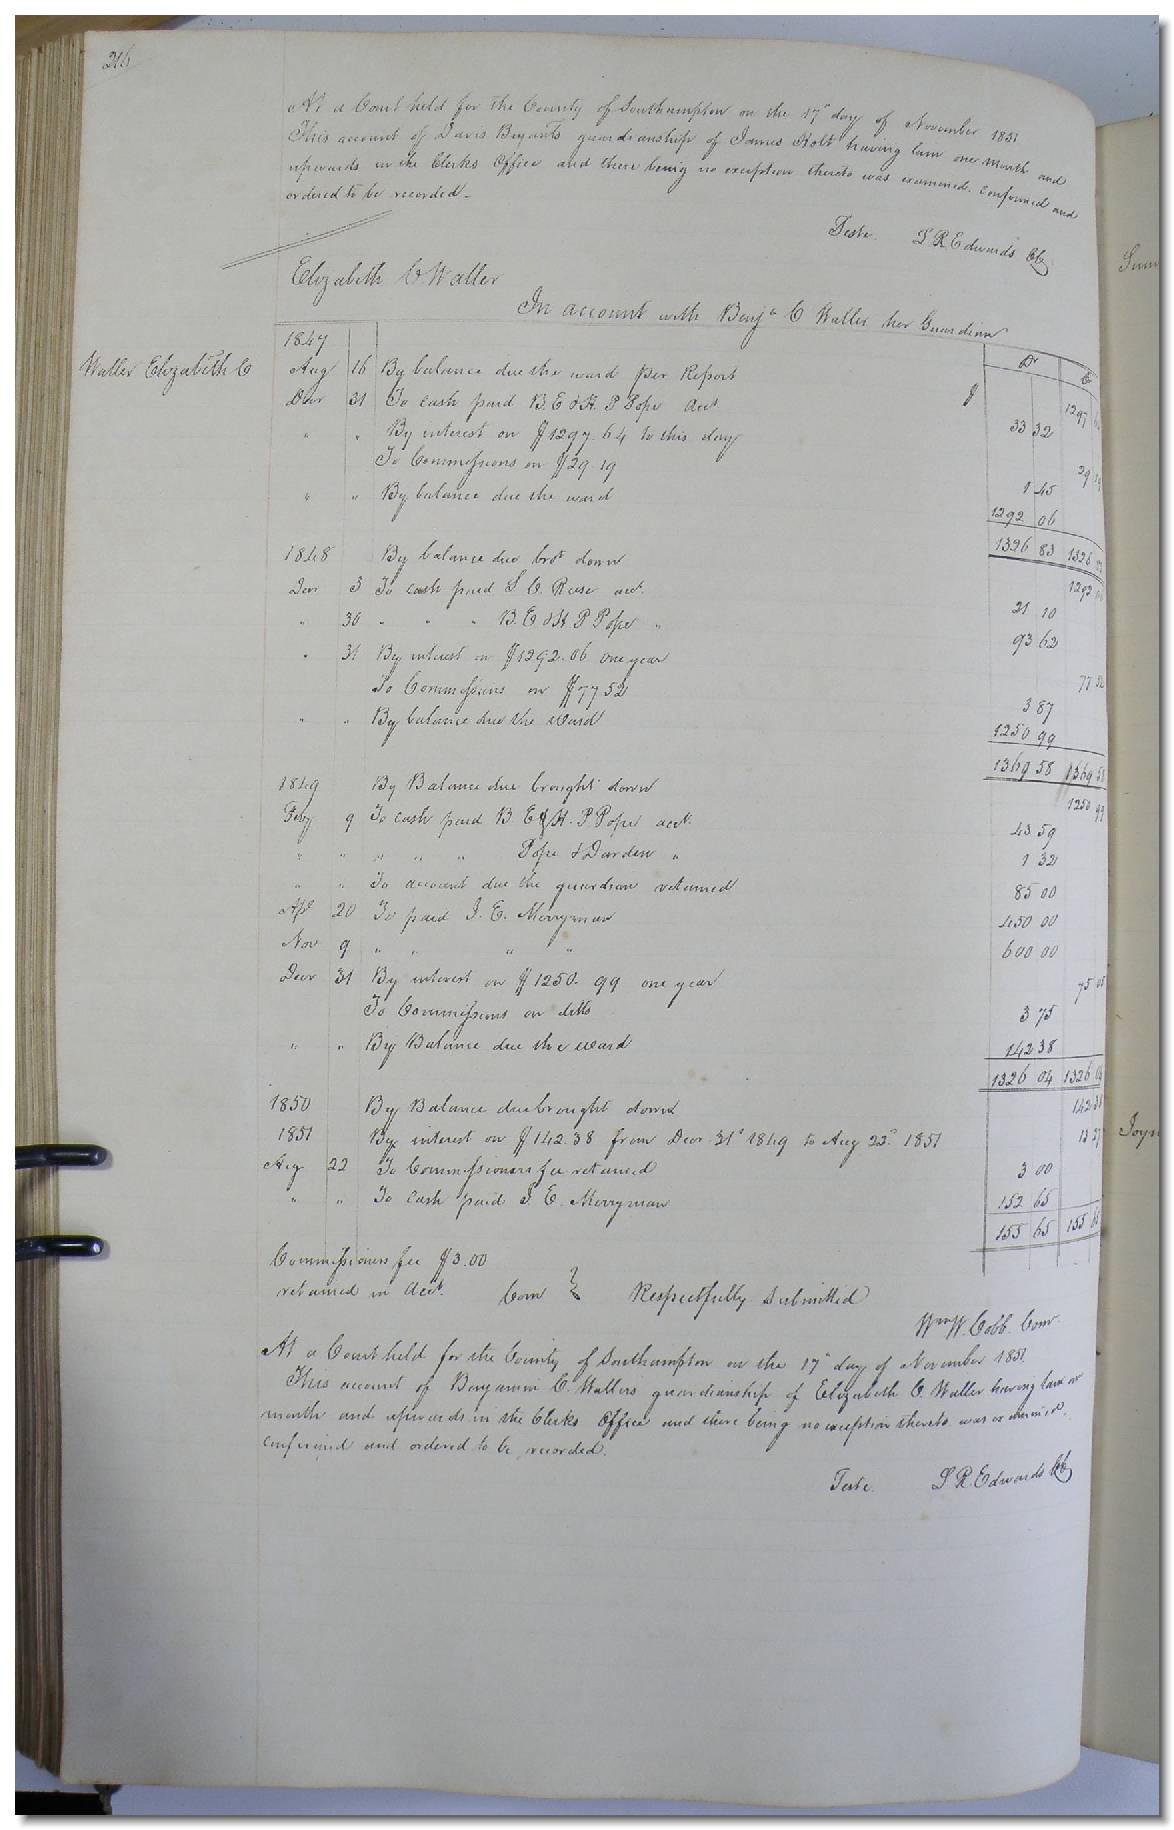 216
At a Court held for the County of Southampton on the 17" day of November 1851
This account of Davis Bryants guardianship of James Holt having lain one month and
upwards in the Clerks Office and there being no exception thereto was examined. Confirmed and
ordered to be recorded.
Teste. L R Edwards CC
Elizabeth C Waller
In account with Benjn C Waller her Guardian
Waller Elizabeth C
Dr Cr
1847
Aug 16 By balance due the ward per Report $ 1297 64
Decr 31 To cash paid B. E & H. P Pope acct 33 32
" " By interest on $1297.64 to this day 29 19
To Commissions on $29.19 1 45
" " By balance due the ward 1292 06
1326 83 1326 83
1848 By balance due brot down 1292 06
Decr 3 To cash paid L. C. Reese acct. 21 10
" 30 " " " B. E & H. P Pope " 93 62
" 31 By interest on $1292.06 one year 77 52
To Commissions on $77 52 3 87
" " By balance due the ward 1250 99
1369 58 1369 58
1849 By Balance due brought down 1250 99
Feby 9 To cash paid B. E & H. P Pope acct. 43 59
" " " " " Pope & Darden " 1 32
" " To account due the guardian returned 85 00
Apl 20 To paid J. E. Merryman 450 00
Nov 9 " " " " 600 00
Decr 31 By interest on $1250.99 one year 75 05
To Commissions on ditto 3 75
" " By Balance due the ward 142 38
1326 04 1326 04
1850 By Balance due brought down 142 38
1851 By interest on $142.38 from Decr 31st 1849 to Aug 22d 1851 13 27
Aug 22 To Commissioners fee returned 3 00
" " To cash paid J. E. Merryman 152 65
155 65 155 65
Commissioners fee $3.00
returned in acct. Com } Respectfully submitted
Wm W. Cobb. Comr.
At a Court held for the County of Southampton on the 17" day of November 1851.
This account of Benjamin C. Wallers guardianship of Elizabeth C. Waller having lain one
month and upwards in the Clerks Office and there being no exception thereto was examined.
confirmed and ordered to be recorded.
Teste. L R. Edwards CC